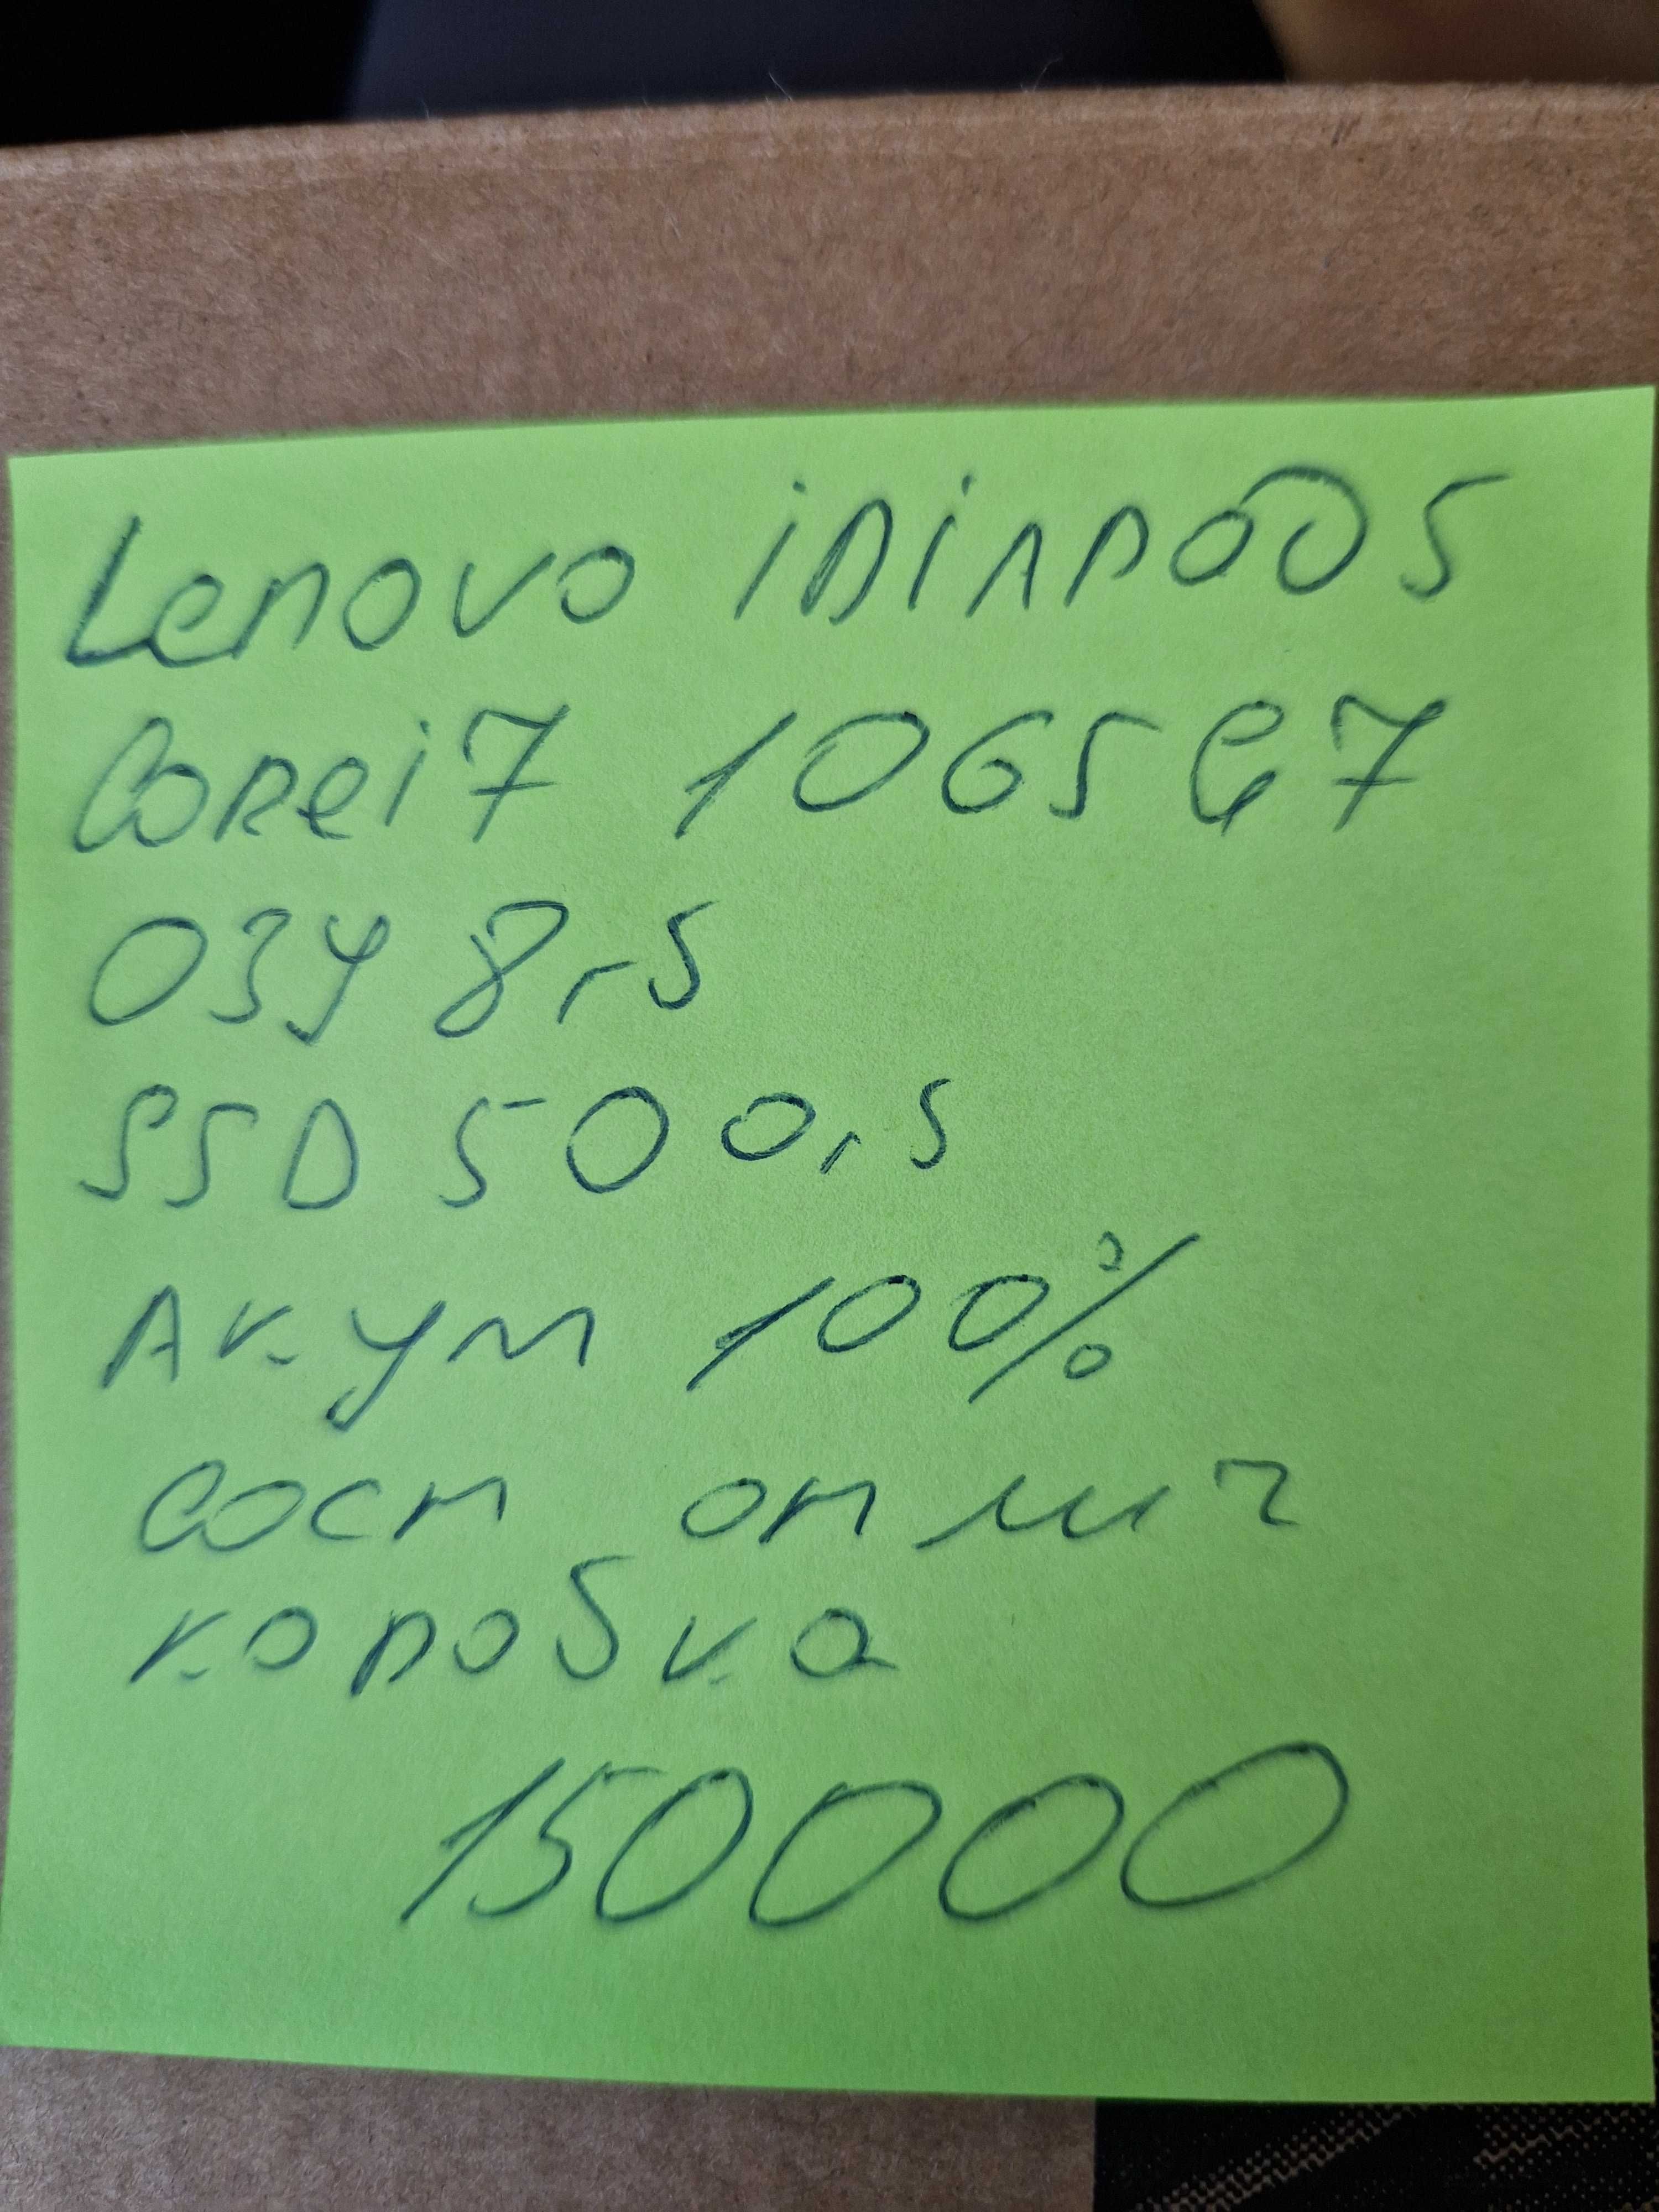 Lenovo iDiAPOD5
Corei7 1065G7
ОЗУ 8гб
SSD 500гб
Акум 100%
сост отлич
коробка
150000